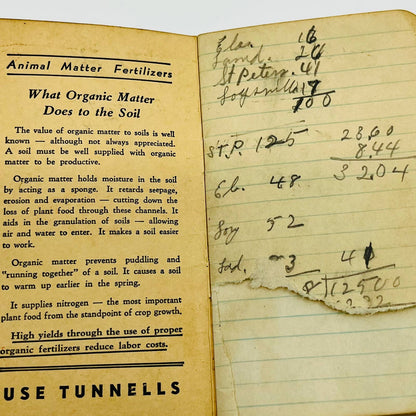 Animal Matter Fertilizers
What Organic Matter
Does to the Soil
The value of organic matter to soils is well
known — although not always appreciated.
A soil must be well supplied with organic
matter to be productive.
Organic matter holds moisture in the soil
by acting as a sponge. It retards seepage,
erosion and evaporation — cutting down the
loss of plant food through these channels. It
aids in the granulation of soils — allowing
air and water to enter. It makes a soil easier
to work.
Organic matter prevents puddling and
"running together" of a soil. It causes a soil
to warm up earlier in the spring.
It supplies nitrogen — the most important
plant food from the standpoint of crop growth.
High yields through the use of proper
organic fertilizers reduce labor costs.
USE TUNNELLS
16
26
St Peters 41
17
100
St. P. 125
23.60
8.44
32.04
Eb. 48
Soy 52
3
41
8)12500